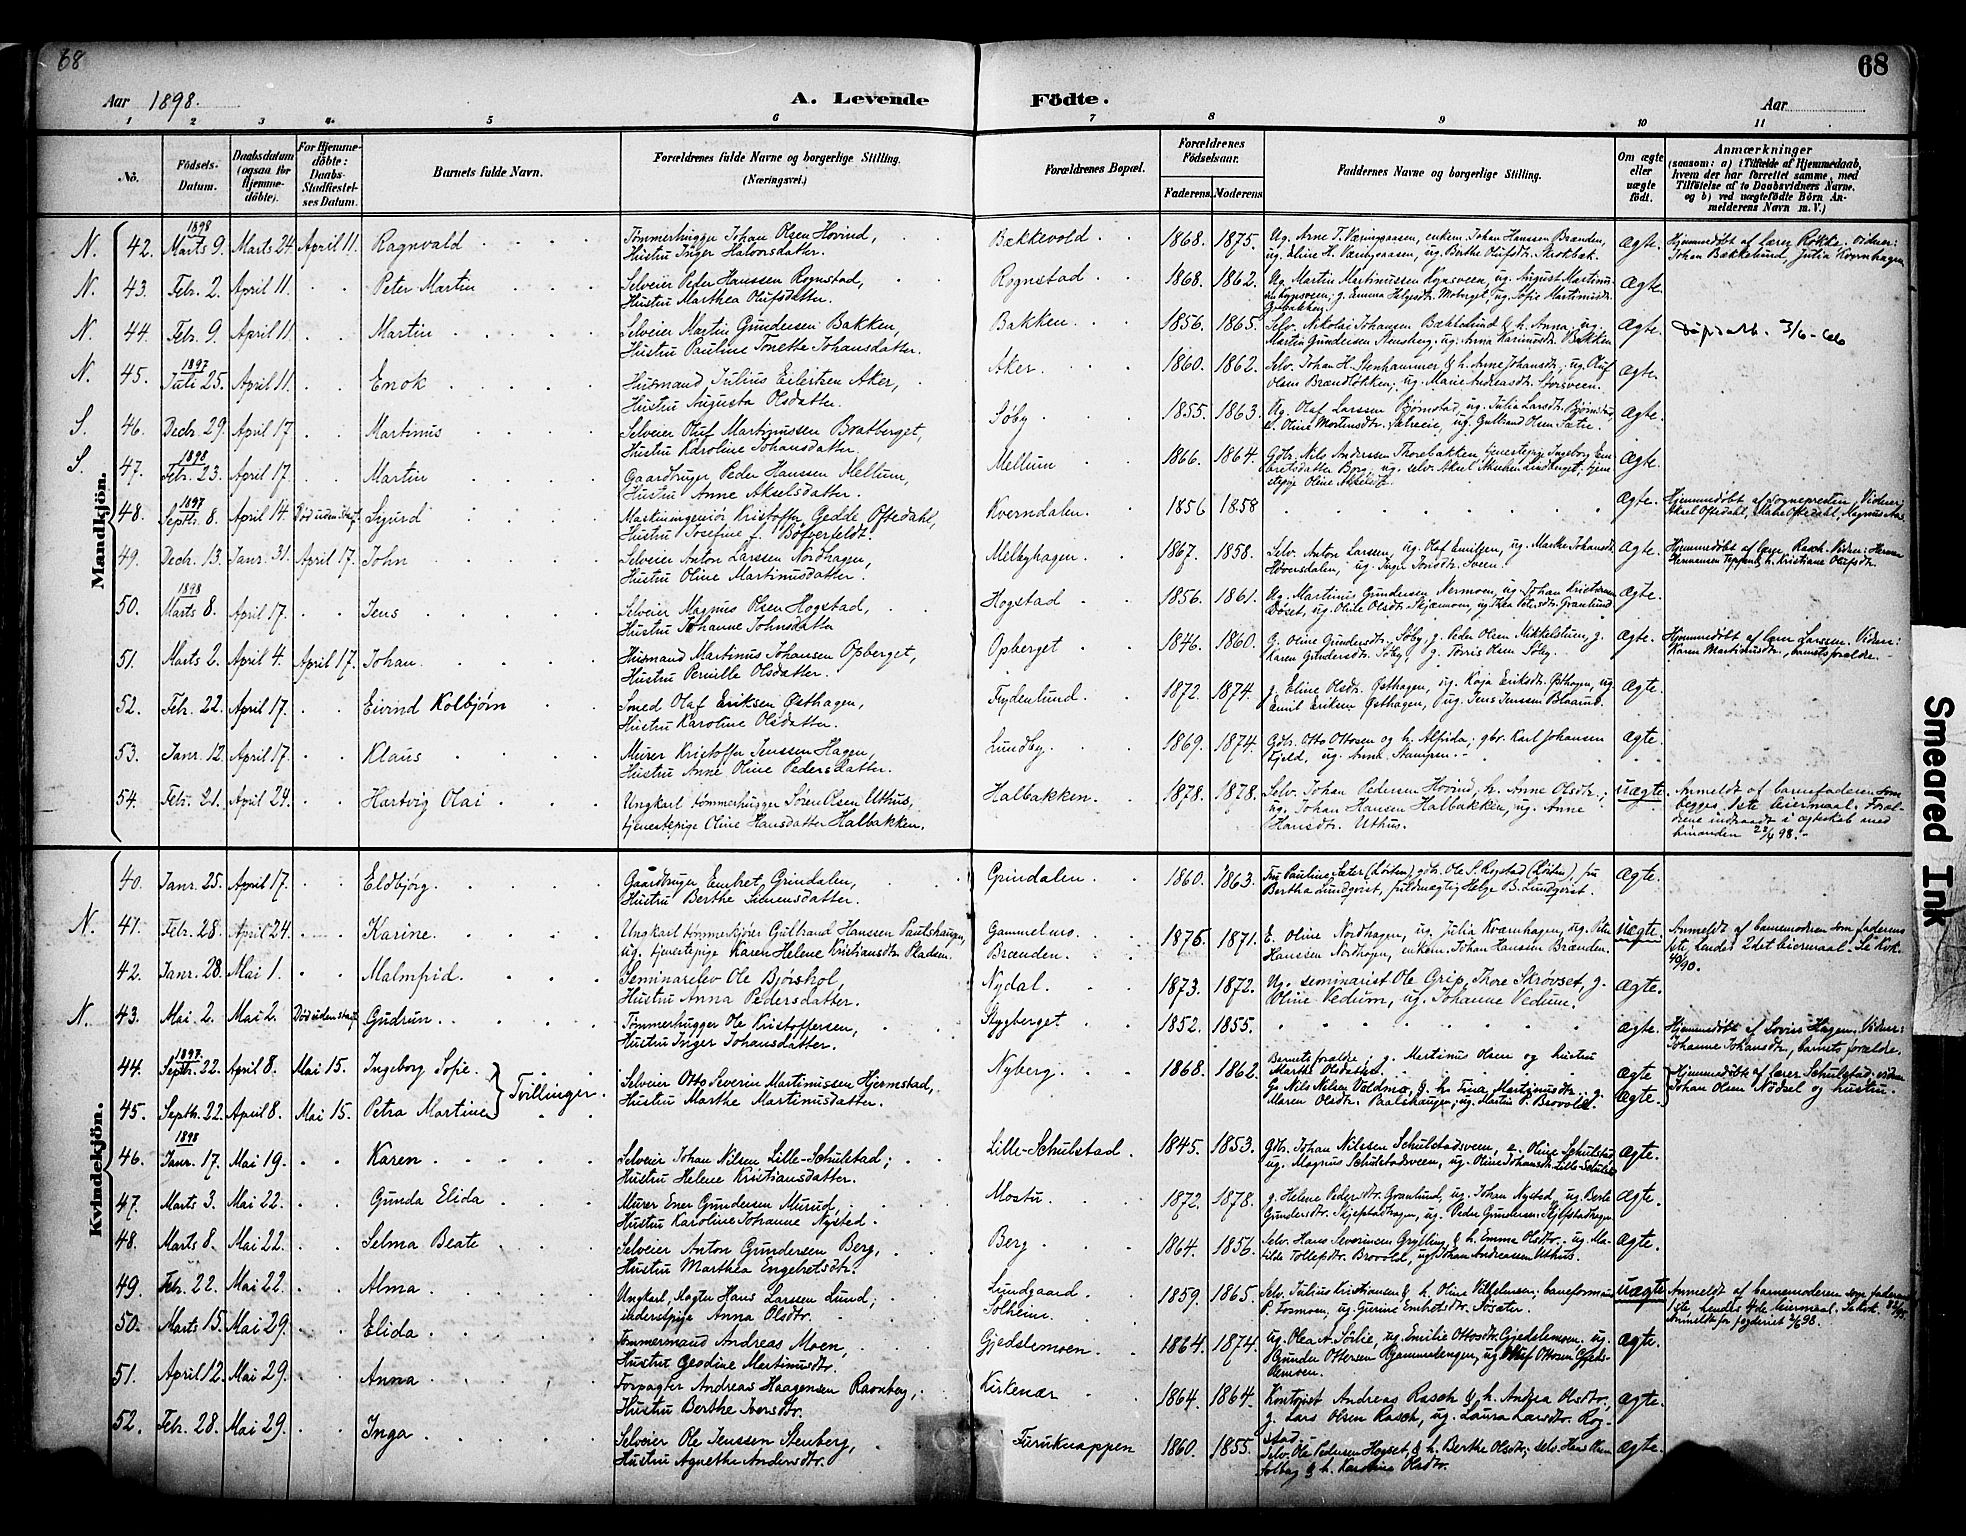 68
68
Aar 1898.
A. Levende Födte.
Aar
1 2 3 4. 5 6 7 8 9 10 11
Nö.
Födsels-Datum.
Daabsdatum (ogsaa for Hjemme-döbte).
For Hjemme-döbte: Daabs-Stadfæstel-ses Datum.
Barnets fulde Navn.
Forældrenes fulde Navne og borgerlige Stilling.
(Næringsvei.)
Forældrenes Bopæl.
Forældrenes Födselsaar.
Faderens. Moderens.
Faddernes Navne og borgerlige Stilling.
Om ægte eller uægte födt.
Anmærkninger
(saasom: a) i Tilfælde af Hjemmedaab, hvem der har forrettet samme, med Tilföielse af to Daabsvidners Navne. og b) ved uægtefödte Börn Anmelderens Navn m. V.)
Mandkjön.
N. 42. 1898 Marts 9. Marts 24 April 11. Ragnvald Tømmerhugger Johan Olsen Hovind, Hustru Inger Halvorsdatter. Bækkevold 1868. 1875. Ægte. Hjemmedøbt af lærer Røkke. Vidner: Johan Bækkelund, Julia
N. 43. Febr. 2. April 11. Peter Martin Selveier Peder Hanssen Rognstad, Hustru Marthea Olufsdatter. Rognstad 1868. 1862. Ægte.
N. 44. Febr. 9. April 11. Martin Selveier Martin Gundersen Bakken, Hustru Pauline Tonette Johansdatter. Bakken 1856. 1865. Selv. Nikolai Johansen Bækkelund & h. Anna; ug. Martin Gundersen ug. Anna Karinusdtr. Bakken Ægte. Dåpsatt. 3/6-66
N. 45. 1897 Juli 25. April 11. Enok Husmand Julius Eilertsen Aker, Hustru Augusta Olsdatter. Aker 1860. 1862. Selv. Johan H. Stenhammer & h. Anne Johansdtr.; ug. Oluf Olsen Brændløkken; ug. Marie Andreasdtr. Ægte.
S. 46. Decbr. 29. April 17. Martinus Selveier Oluf Martinussen Bratberget, Hustru Karoline Johansdatter. Søby 1855. 1863. Ug. Olaf Larssen Bjørnstad, ug. Julia Larsdtr. Bjørnstad, Ægte.
S. 47. 1898 Febr. 23. April 17. Martin Gaardbruger Peder Hanssen Mellum, Hustru Anne Akselsdatter. Mellum 1866. 1864. Gdbr. Nils Anderssen Thorebakken, tjenestepige Ingeborg Ægte.
48. 1897 Septbr. 8. April 14. Død uden stadf. Sigurd Kristoffer Gedde Oftedahl, Hustru Josefine f. Kverndalen. 1856 1858 Ægte. Hjemmedøbt af sognepresten. Vidner: Aksel Oftedahl,
49. Decbr. 13. Janr. 31. April 17. John Selveier Anton Larssen Nordhagen, Hustru Oline Martinusdatter. Melbyhagen 1867. 1858. Selv. Anton Larssen, ug. Olaf Emilsen, ug. Marthe Johansdtr. Høversdalen, ug. Inger Jonsdtr. Sveen. Ægte. Hjemmedøbt af lærer Rasch. Vidner: Herman Hermansen & h. Kristiane Olufsdtr.
50. 1898 Marts 8. April 17. Jens Selveier Magnus Olsen Hogstad, Hustru Johanne Johnsdatter Hogstad 1856. 1861. Ug. Martinus Gundersen Nermoen, ug. Johan Kristiansen Døset, ug. Oline Olsdtr. Skjærmoen, ug. Thea Petersdtr. Granlund Ægte.
51. Marts 2. April 4. April 17. Johan. Husmand Martinus Johansen Opberget, Hustru Pernille Olsdatter. Opberget 1846. 1860. G. Oline Gundersdtr. Søby, g. Peder Olsen Mikkelstuen, g. Karen Gundersdtr. Søby, g. Torris Olsen Søby. Ægte. Hjemmedøbt af lærer Larssen. Vidner: Karen Martinusdtr., barnets forældre.
52. Febr. 22. April 17. Eivind Kolbjørn Smed Olaf Eriksen Østhagen, Hustru Karoline Olsdatter. Frydenlund. 1872. 1874. g. Eline Olsdtr. Østhagen, ug. Kaja Eriksdtr. Østhagen, ug. Emil Eriksen Østhagen, ug. Jens Jenssen Ægte.
53. Janr. 12. April 17. Klaus Murer Kristoffer Jenssen Hagen, Hustru Anne Oline Pedersdatter. Lundby. 1869. 1874. Gdbr. Otto Ottosen og h. Alfida; gbr. Karl Johansen Fjeld, ug. Anna Stampen. Ægte.
54. Febr. 21. April 24. Hartvig Olai Ungkarl tømmerhugger Søren Olsen Uthus, tjenestepige Oline Hansdatter Halbakken. Halbakken. 1878. 1878. Selv. Johan Pedersen Hovind, h. Anne Olsdtr.; ug. Johan Hansen Halbakken, ug. Anne Hansdtr. Uthus. uægte Anmeldt af barnefaderen som begges 1ste leiermaal. Forældrene indtraadt i ægteskab med hinanden 22/4 98.
Kvindekjön.
40. Janr. 25. April 17. Eldbjørg. Gaardbruger Embret Grindalen, Hustru Berthe Simensdatter. Grindalen 1860. 1863. Fru Pauline Sæter (Løiten), gdbr. Ole S. Rogstad (Løiten), fru Bertha Lundqvist, fuldmægtig Helge B. Lundqvist. Ægte.
N. 41. Febr. 28. April 24. Karine. Ungkarl tømmerkjører Gulbrand Hanssen Paulshaugen, ug. tjenestepige Karen Helene Kristiansdtr. Pladsen. Gammelmo. Brænden. 1875. 1871. E. Oline Nordhagen, ug. Julia Kværnhagen, ug. Peter Hanssen Nordhagen, enkem. Johan Hanssen Brænden. uægte Anmeldt af barnemoderen som faderens 1ste, hendes 2det leiermaal. Se Kbk. 40/90.
42. Janr. 28. Mai 1. Malmfrid. Seminarelev Ole Bjørshol, Hustru Anna Pedersdatter. Nydal 1873. 1872. Ug. seminarist Ole Grip, Thore Skrøvset, g. Oline Vedum, ug. Johanne Vedum. Ægte.
N. 43. Mai 2. Mai 2. Død uden stadf. Gudrun. Tømmerhugger Ole Kristoffersen, Hustru Inger Johansdatter. Stygberget 1852. 1855. Ægte. Hjemmedøbt af Lovise Hagen. Vidner: Johanne Johansdtr., barnets forældre.
44. 1897. Septbr. 22. April 8. Mai 15. Ingeborg Sofie. Tvillinger. Selveier Otto Severin Martinussen Hjermstad, Hustru Marthe Martinusdatter. Nyberg. 1868. 1862. Barnets forældre; g. Martinus Olsen og hustru Marthe Olsdatter. Ægte Hjemmedøbt af lærer Schulstad. vidner Johan Olsen Nødsel og hustru.
45. Septbr. 22. April 8. Mai 15. Petra Martine g. Nils Nilsen Voldmo, & h. Tina Martinusdtr., g. Maren Olsdtr. Paalshaugen; ug. Martin P. Brovold. Ægte.
46. 1898 Janr. 17. Mai 19. Karen Selveier Johan Nilsen Lille-Schulstad; Hustru Helene Kristiansdatter. Lille-Schulstad 1845. 1853. Gdb. Johan Nilssen Schulstadsveen, e. Oline Schulstad ug. Magnus Schulstadsveen, ug. Oline Johansdtr. Lille-Schulstad Ægte.
47. Marts 3. Mai 22. Gunda Elida Murer Ener Gundersen Murud, Hustru Karoline Johanne Nysted. Mostu 1872. 1878. g. Helene Pedersdtr. Granlund, ug. Johan Nystad, ug. Berte Gundersdtr. Skjefstadhagen, ug. Peder Gundersen Skjefstadhagen Ægte.
48. Marts 8. Mai 22. Selma Beate Selveier Anton Gundersen Berg, Hustru Marthea Engebretsdtr. Berg 1864. 1856. Selv. Hans Severinsen Grylling & h. Emma Olsdtr. ug. Matilde Tollefsdtr. Brovold, ug. Johan Andreassen Uthus. Ægte.
49. Febr. 22. Mai 22. Alma Ungkarl, Hans Larssen Lund; inderstpige Anna Olsdtr. Lundgaard Solheim. 1859. 1865. Selv. Julius Kristiansen & h. Oline Vilhelmsen; baneformand P. Formoen, ug. Gurine Embretsdtr. uægte Anmeldt af barnemoderen som faderens 1ste, hendes 4de leiermaal. Se kbk. Anmeldt for fogderiet 2/6 98.
50. Marts 15. Mai 29. Elida Tømmermand Andreas Moen, Hustru Gjedine Martinusdtr. Gjedslemoen 1864. 1874. ug. Olea A. Sølie, ug. Emilie Ottosdtr. Gjedslemoen. ug. Gunder Ottersen Gammelengen, ug. Oluf Ottosen Gjedslemoen. Ægte.
51. April 12. Mai 29. Anna Forpagter Andreas Haagensen Ravnberg, Hustru Berthe Iversdtr. Kirkenær 1864. 1864. Andreas Rasch & h. Andrea Olsdtr., g. Lars Olsen Rasch, ug. Laura Larsdtr. Rogstad. Ægte.
52. Febr. 28. Mai 29. Inga Selveier Ole Jenssen Stenberg, Hustru Agnethe Andersdtr. Furuknappen 1860. 1855. Selv. Ole Pedersen Hogset, & h. Berthe Olsdtr., selv. Hans & h. Karoline Olsdtr. Ægte.
Smeared Ink